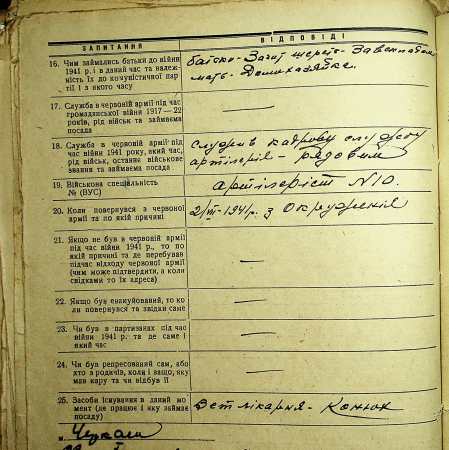 ЗАПИТАННЯ
ВІДПОВІДІ
16. Чим займались батьки до війни
1941 р. і в даний час та належ-
ність їх до комуністичної пар-
тії і з якого часу
батько -
мать - Домохазяйка.
17. Служба в червоній армії під час
громадянської війни 1917—22
років, рід військ та займаєма
посада
—
18. Служба в червоній армії під
час війни 1941 року, який час,
рід військ, останнє військове
звання та займаєма посада
служив кадрову службу
артилерія - рядовим
19. Військова спеціальність
№ (ВУС)
артілеріст N 10.
20. Коли повернувся з червоної
армії та по якій причині
1941 р. з Окруженія
21. Якщо не був в червоній армії
під час війни 1941 р., то по
якій причині та де перебував
підчас відходу червоної армії
(чим може підтвердити, а коли
свідками то їх адреса)
—
22. Якщо був евакуйований, то ко
ли повернувся та звідки саме
—
23. Чи був в партизанах під час
війни 1941 р. та де саме і
який час
—
24. Чи був репресований сам, або
хто з родичів, коли і защо, яку
мав кару та чи відбув її
—
25. Засоби існування в даний мо
мент (де працює і яку займає
посаду)
Ветлікарня - Конюх
м. Черкаси